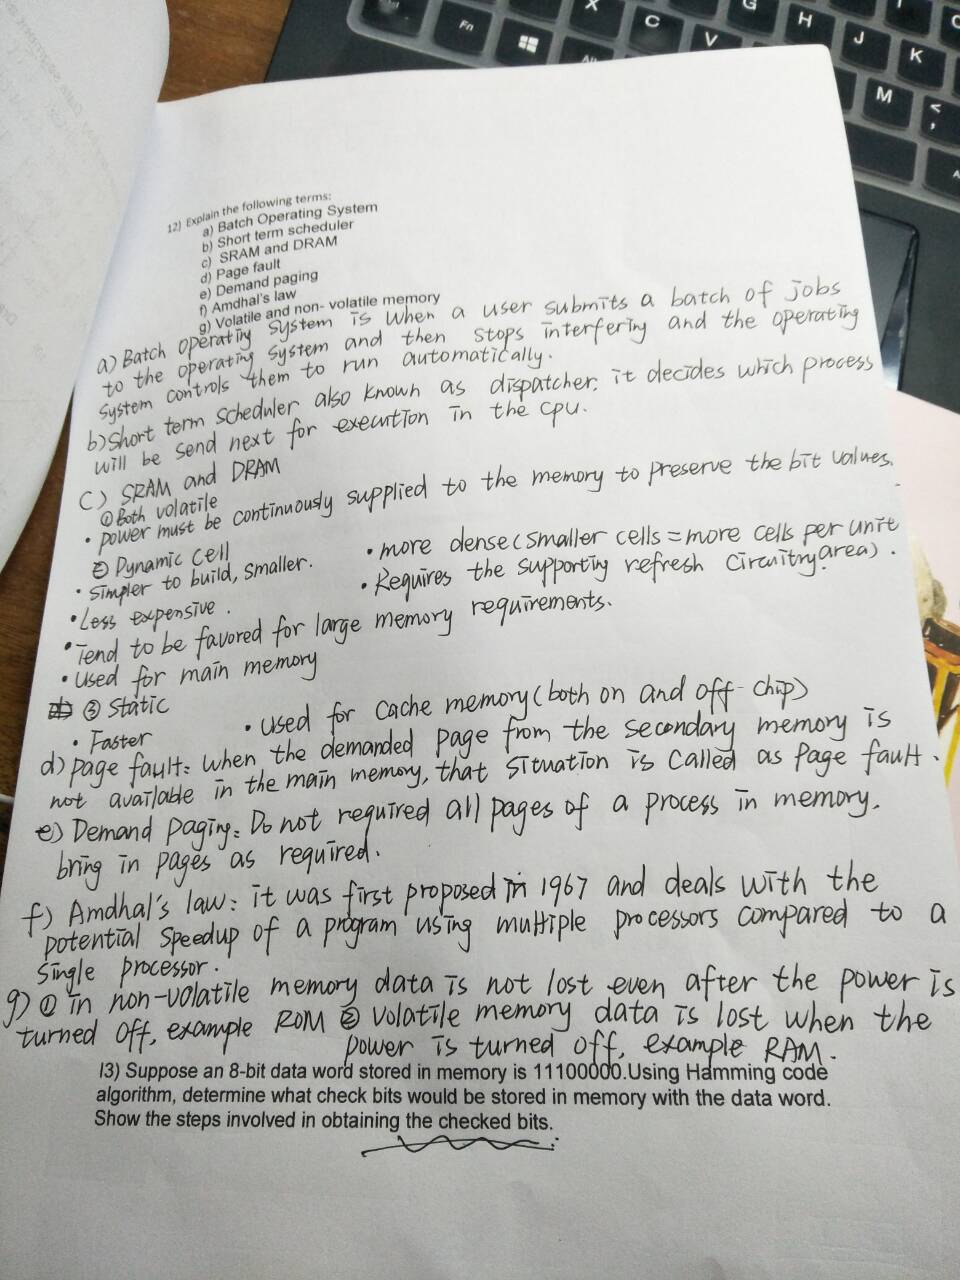 Fn
X
C
V
G
H
J
K
M
<
,
Alt
12) Explain the following terms:
a) Batch Operating System
b) Short term scheduler
c) SRAM and DRAM
d) Page fault
e) Demand paging
f) Amdhal's law
g) Volatile and non- volatile memory
a) Batch operating system is when a user submits a batch of jobs
to the operating system and then stops interfering and the operating
system controls them to run automatically.
b) Short term scheduler also known as dispatcher. it decides which process
will be send next for execution in the cpu.
C) SRAM and DRAM
① Both volatile
• power must be continuously supplied to the memory to preserve the bit values.
② Dynamic cell
• simpler to build, smaller. • more dense (smaller cells = more cells per unit area).
• Less expensive. • Requires the supporting refresh circuitry.
• Tend to be favored for large memory requirements.
• used for main memory
③ Static
• Faster • used for cache memory (both on and off-chip)
d) page fault: when the demanded page from the secondary memory is
not available in the main memory, that situation is called as page fault.
e) Demand paging: Do not required all pages of a process in memory.
bring in pages as required.
f) Amdhal's law: it was first proposed in 1967 and deals with the
potential speedup of a program using multiple processors compared to a
single processor.
g) ① in non-volatile memory data is not lost even after the power is
turned off, example ROM ② volatile memory data is lost when the
power is turned off, example RAM.
13) Suppose an 8-bit data word stored in memory is 11100000.Using Hamming code
algorithm, determine what check bits would be stored in memory with the data word.
Show the steps involved in obtaining the checked bits.